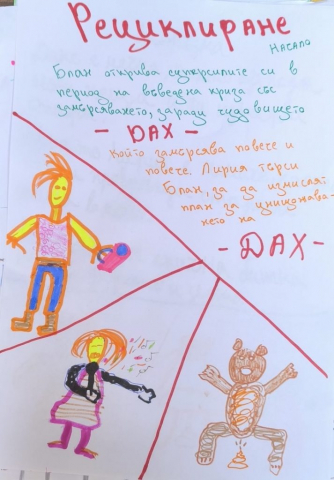 Рециклиране
Начало
Блан открива суперсилите си в
период на въведена криза със
замърсяването, заради чудовището
- DAX -
който замърсява повече и
повече. Лирия търси
Блан, за да измислят
план за унищожава-
нето на
- DAX -